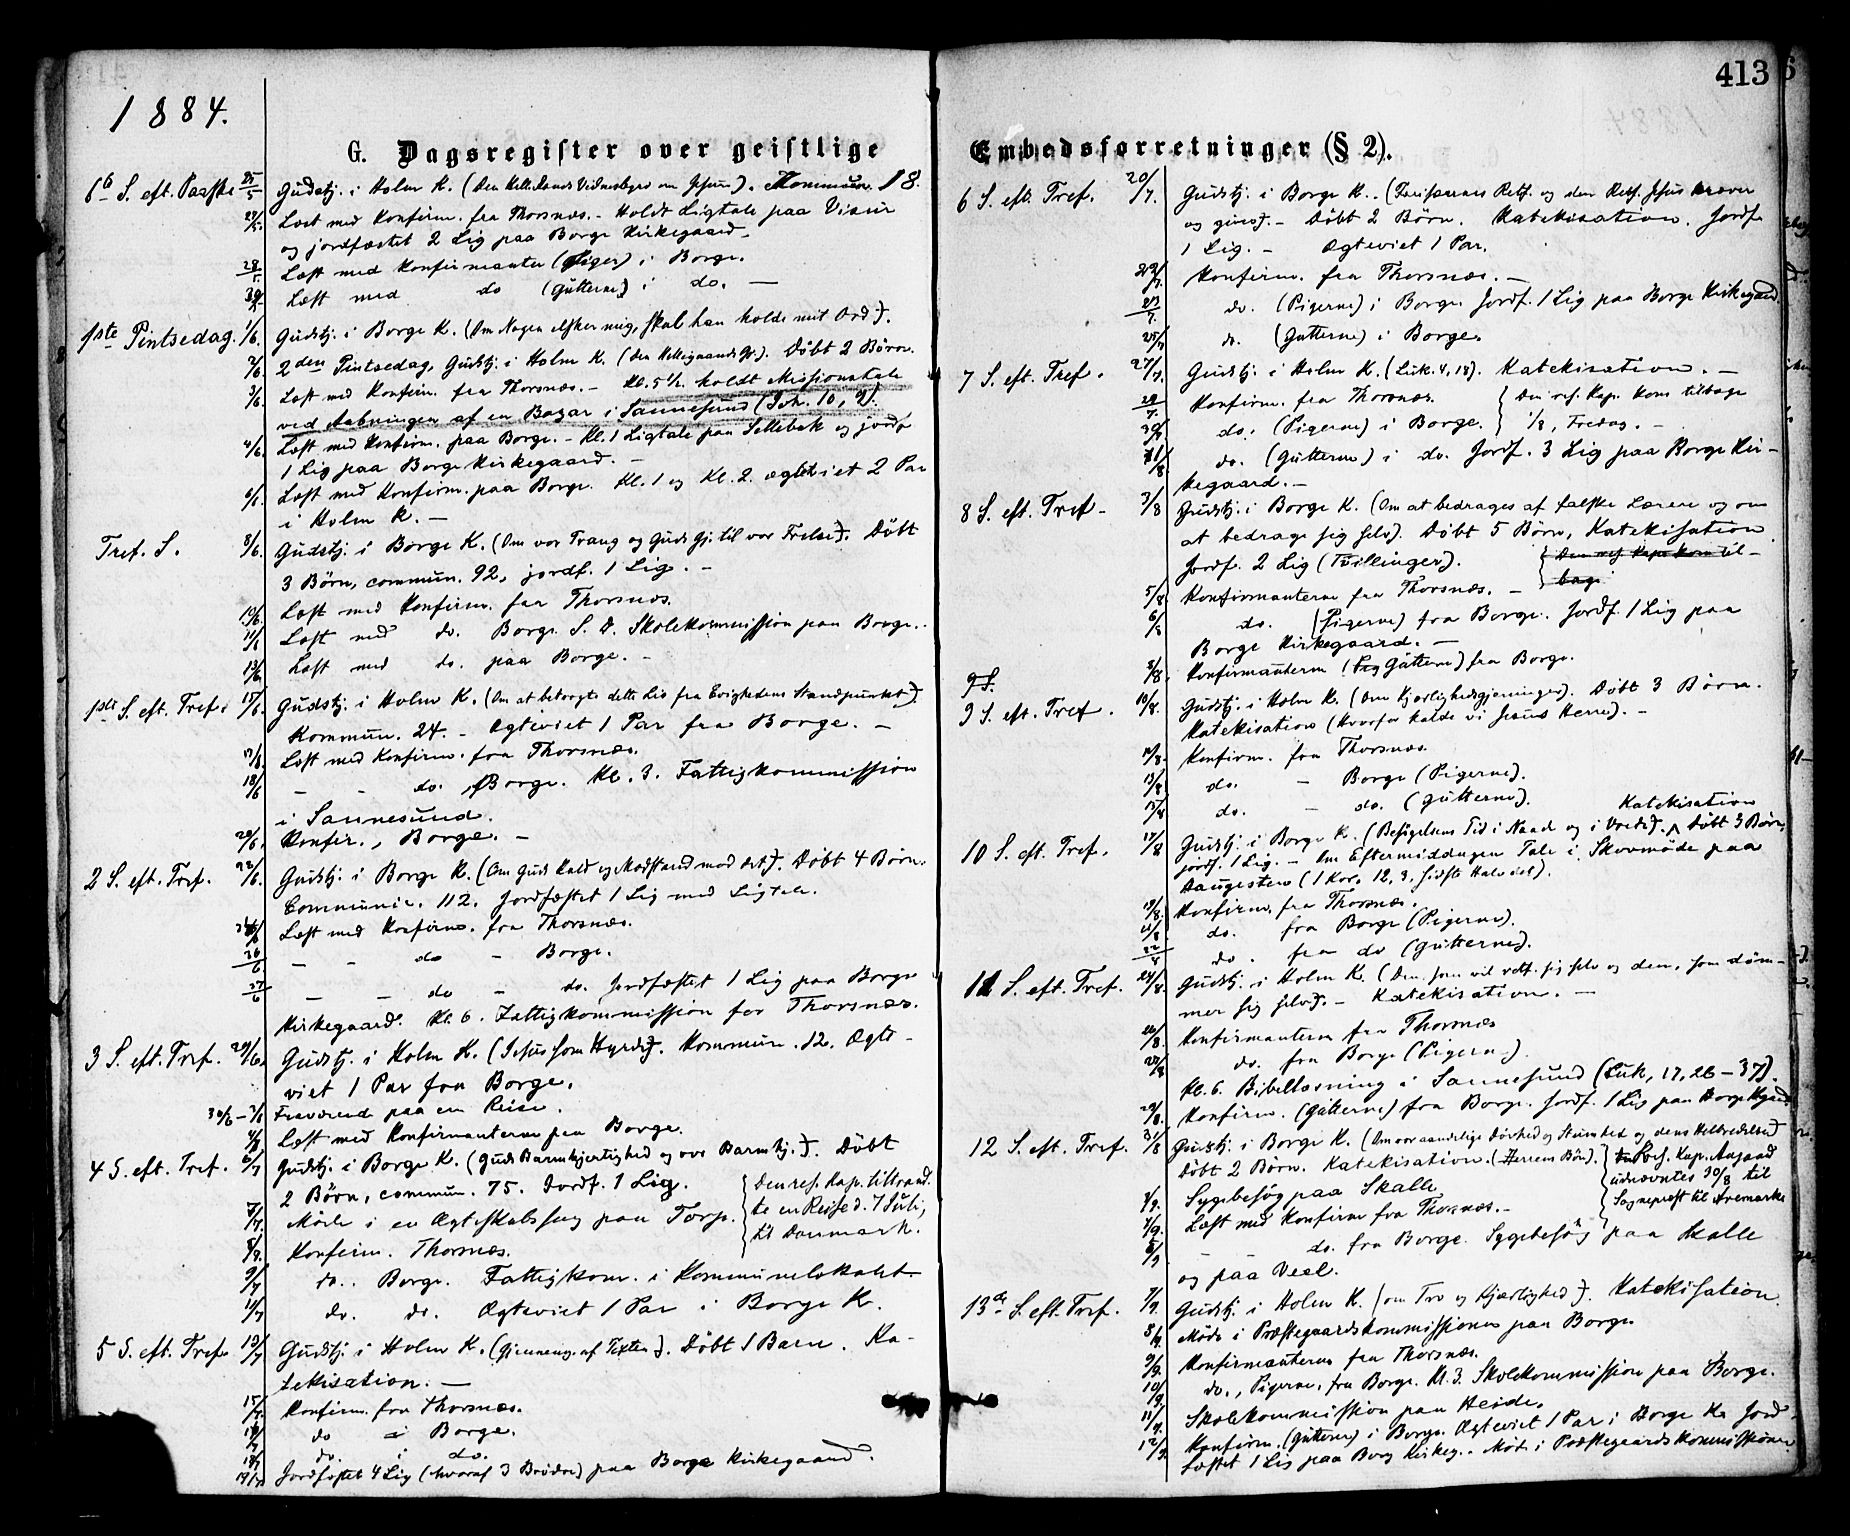 1884.
G. Dagsregister over geistlige
6te S. eft. Paaske 25/5 Gudstj. i Holm K. (Den Helligaands Vidnesbyrd om Jesum). Kommun. 18.
27/5. Læst med Konfirm. fra Thorsnæs. - Holdt Ligtale paa Visur
og jordfæstet 2 Lig paa Borge Kirkegaard -
28/5 Læst med Konfirmanter (Piger) i Borge.
30/5 Læst med do (Gutterne) i do. —
1ste Pintsedag. 1/6. Gudstj. i Borge K. (Om Nogen elsker mig, skal han holde mit Ord).
2/6 2den Pintsedag, Gudstj. i Holm K. (Den Helligaands Gj.). Døbt 2 Børn.
3/6. Læst med Konfirm. fra Thorsnæs. - Kl. 5 1/2 holdt Missionstale
ved Aabningen af en Bazar i Sannesund (Joh. 10, 9).
4/6. Læst med Konfirm. paa Borge. - Kl. 1 Ligtale paa Sellebak og jordf.
1 Lig paa Borge Kirkegaard. —
6/6. Læst med Konfirm. paa Borge. Kl. 1 og Kl. 2. ægteviet 2 Par
i Holm K. —
Tref. S. 8/6. Gudstj. i Borge K. (Om vor Trang og Guds Gj. til vor Frelse). Døbt
3 Børn, commun. 92, jordf. 1 Lig. -
10/6. Læst med Konfirm. fra Thorsnæs.
11/6 Læst med do. Borge. S. D. Skolekommission paa Borge.
13/6 Læst med do. paa Borge. -
1ste S. eft. Tref. 15/6. Gudstj. i Holm K. (Om at betragte dette Liv fra Evighedens Standpunkt).
Kommun. 24. - Ægteviet 1 Par fra Borge. —
17/6. Læst med Konfirm. fra Thorsnæs.
18/6 - - do. , Borge. Kl. 3. Fattigkommission
i Sannesund.
20/6. Konfir. , Borge. -
2 S. eft. Tref. 22/6. Gudstj. i Borge K. (Om Guds Kald og Modstand mod det). Døbt 4 Børn.
Communic. 112. Jordfæstet 1 Lig med Ligtale.
24/6 Læst med Konfirm. fra Thorsnæs.
26/6 - - do - Borge.
27/6 - - do - do. Jordfæstet 1 Lig paa Borge
Kirkegaard. Kl. 6. Fattigkommission for Thorsnæs.
3 S. eft. Tref. 29/6. Gudstj. i Holm K. (Jesus som Hyrde). Kommun. 12. Ægte-
viet 1 Par fra Borge.
30/6 - 3/7 Fraværend paa en Reise.
4/7 Læst med Konfirmanterne paa Borge.
4 S. eft. Tref. 6/7 Gudstj. i Borge K. (Guds Barmhjertighed og vor Barmhj.). Døbt
2 Børn, commun. 75. Jordf. 1 Lig.
7/7. Møde i en Ægteskabssag paa Torp.
Den res. Kap. tiltraad-
te en Reise d. 7 Juli,
til Danmark.
8/7. Konfirm. Thorsnæs.
9/7 do. . Borge. Fattigkom. i Kommunelokalet.
11/7 do. do. Ægteviet 1 Par i Borge K.
5 S. eft. Tref. 13/7 Gudstj. i Holm K. (Gjennemg. af Texten). Døbt 1 Barn. Ka-
tekisation. —
15/7. Konfirm. fra Thorsnæs.
do i Borge.
do. i do.
19/7 Jordfæstet 4 Lig (hvoraf 3 Brødre) paa Borge Kirkegaard.
413
Embedsforretninger (§ 2).
6 S. eft. Tref. 20/7. Gudstj. i Borge K. (Farisæernes Retf. og den Retf. Jesus kræver
og giver). - Døbt 2 Børn. Katekisation. Jordf.
1 Lig. - Ægteviet 1 Par.
22/7. Konfirm. fra Thorsnæs. —
23/7. do. (Pigerne) i Borge. Jordf. 1 Lig paa Borge Kirkegaard.
25/7 do. (Gutterne) i Borge.
7 S. eft. Tref. 27/7. Gudstj. i Holm K. (Luk. 4, 18). Katekisation. -
29/7. Konfirm. fra Thorsnæs.
Den res. Kap. kom tilbage
1/8, Fredag. -
30/7. do. (Pigerne) i Borge.
1/8 do. (Gutterne) i do. Jordf. 3 Lig paa Borge Kir-
kegaard. -
8 S. eft. Tref - 3/8 Gudstj. i Borge K. (Om at bedrages af falske Lærere og om
at bedrage sig selv). Døbt 5 Børn, Katekisation
Jordf. 2 Lig (Tvillinger).
Den res. Kap. kom til-
bage
5/8 Konfirmanterne fra Thorsnæs. -
6/8 do. (Pigerne) fra Borge. Jordf. 1 Lig paa
Borge Kirkegaard. —
8/8. Konfirmanterne (Pig Gutterne) fra Borge.
9 S.
9 S. eft. Tref. 10/8. Gudstj. i Holm K. (Om Kjærlighedsgjerninger). Døbt 3 Børn.
Katekisation (Hvorfor kalde vi Jesus Herre). -
12/8. Konfirm. fra Thorsnæs.
13/8 do. - Borge (Pigerne).
15/8 do. - do. (Gutterne). Katekisation
10 S. eft. Tref. 17/8 Gudstj. i Borge K. (Besøgelsens Tid i Naade og i Vrede). Døbt 3 Børn,
jordf. 1 Lig. - Om Eftermiddagen Tale i Skovmøde paa
Haugesten (1 Kor. 12, 3, sidste Halvdel).
19/8. Konfirm. fra Thorsnæs.
do. fra Borge (Pigerne).
22/8 do. fra do (Gutterne).
11 S. eft. Tref. 24/8. Gudstj. i Holm K. (Den, som vil retf. sig selv og den, som døm-
mer sig selv). - Katekisation. —
26/8. Konfirmanterne fra Thorsnæs
27/8 do. fra Borge (Pigerne).
Kl. 6. Bibellæsning i Sannesund (Luk, 17, 26 - 37).
29/8. Konfirm. (Gutterne) fra Borge. Jordf. 1 Lig paa Borge Kgaard
12 S. eft. Tref. 31/8 Gudstj. i Borge K. (Om vor aandelige Døvhed og Stumhed og dens Helbredelse)
Døbt 2 Børn. Katekisation. (Herrens Bøn).
Res. Kap. Aagaard
udnævntes 30/8 til
Sognepræst til Aremarke
Sygebesøg paa Skalle
Læst med Konfirm fra Thorsnæs. -
5/9 - - do. fra Borge. Sygebesøg paa Skalle
og paa Vesl.
13de S. eft. Tref. 7/9. Gudstj. i Holm K. (om Tro og Kjærlighed). Katekisation.
8/9 Møde i Præstegaardskommissionen paa Borge.
9/9. Konfirmanterne fra Thorsnæs.
10/9 do., Pigerne, fra Borge. Kl. 3. Skolekommission paa Borge.
11/9. Skolekommission paa Heide.
12/9. Konfirm. (Gutterne) i Borge. Ægteviet 1 Par i Borge K. Jord-
fæstet 1 Lig paa Borg Kirkeg. - Møde i Præstegaardskommissionen